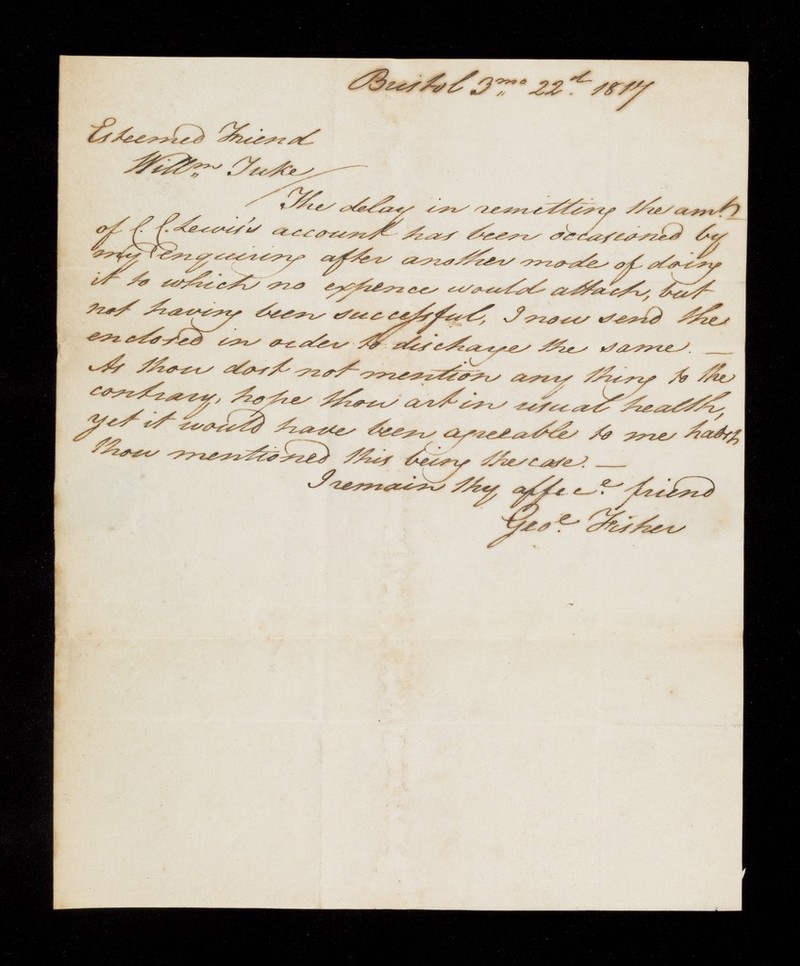 Bristol 3mo 22d. 1817
Esteemed Friend
Willm Tuke
The delay in remitting the amt.
of C. C. Lewis's account has been occasioned by
my enquiring after another mode of doing
it to which no expence would attach, but
not having been successful, I now send the
enclosed in order to discharge the same. —
As thou dost not mention any thing to the
contrary, hope thou art in usual health,
yet it would have been agreeable to me hadst
thou mentioned this being the case. —
I remain thy affece. friend
Geoe. Fisher